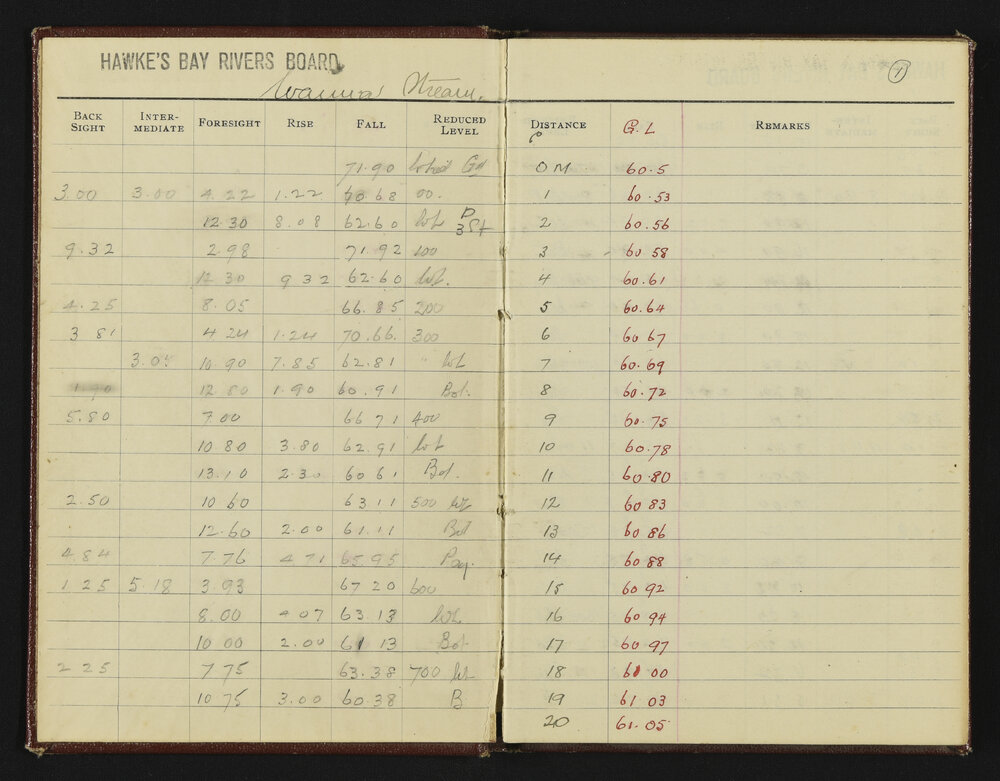 HAWKE'S BAY RIVERS BOARD
Stream.
BACK SIGHT INTER-MEDIATE FORESIGHT RISE FALL REDUCED LEVEL
71.90
3.00 3.00 4.22 1.22 70.68 00.
12.30 8.08 62.60 Wt
9.32 2.98 71.92 100
12.30 9 32 62.60 Wt.
4.25 8.05 66.85 200
3 81 4 24 1.24 70.66. 300
3.05 10.90 7.85 62.81 " Wt
1.90 12.80 1.90 60.91 Bot.
5.80 7.00 66 71 400
10.80 3.80 62.91 Wt
13.10 2.30 60 61 Bot.
2.50 10 60 63 11 500 Wt
12.60 2.00 61.11 Bot
4.84 7.76 4 71 65.95
1 25 5.18 3.93 67 20 600
8.00 4 07 63 13 Wt.
10 00 2.00 61 13 Bot
2 25 7 75 63.38 700 Wt
10 75 3.00 60.38 B
1
DISTANCE G.L REMARKS
0 M 60.5
1 60.53
2 60.56
3 60 58
4 60.61
5 60.64
6 60 67
7 60.69
8 60.72
9 60.75
10 60.78
11 60 80
12 60 83
13 60 86
14 60 88
15 60 92
16 60 94
17 60 97
18 61 00
19 61 03
20 61.05